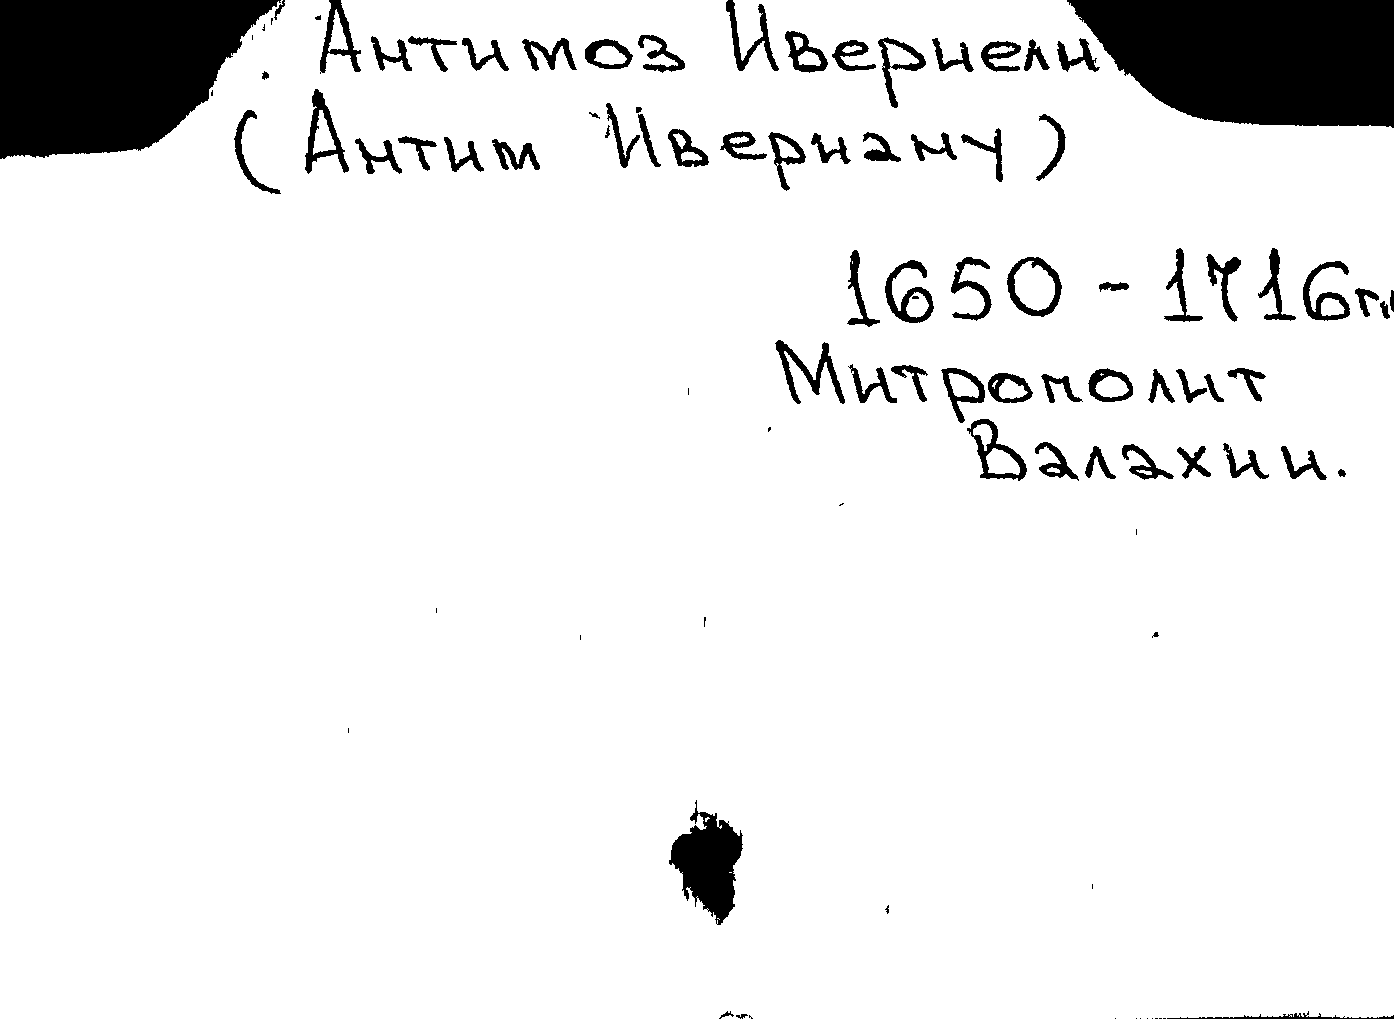 Антимоз Ивериели
(Антим Ивериану)
1650 - 1716 гг.
Митрополит
Валахии.